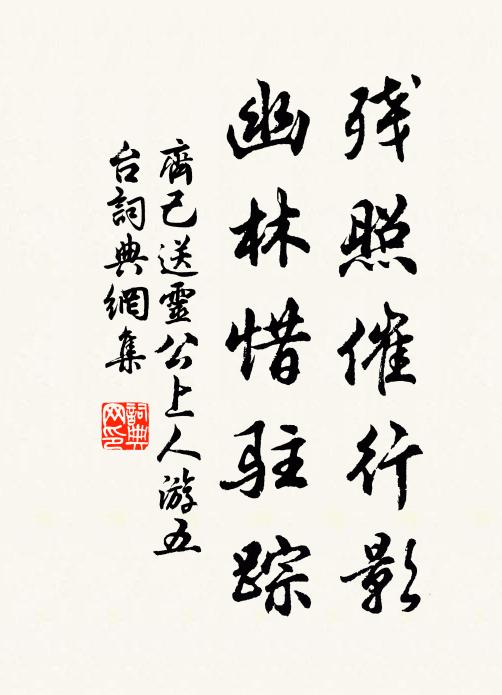 残照催行影
幽林惜驻踪
齊己送靈公上人游五
台詞典網集
詞典
网印